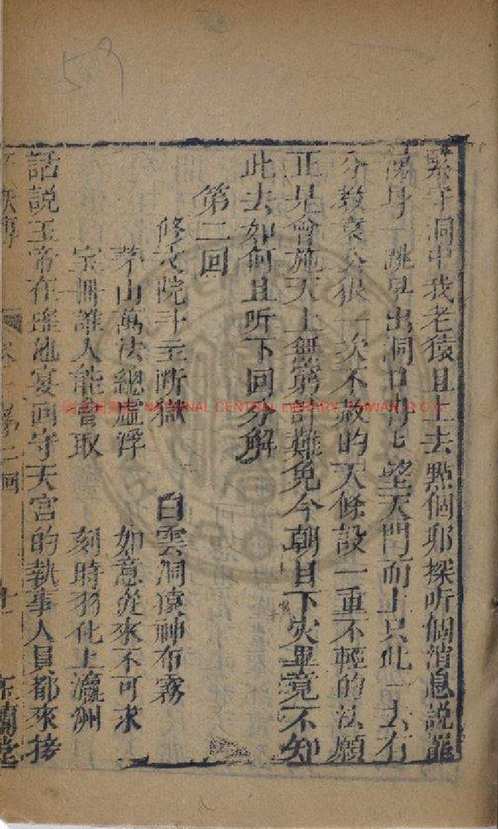 緊守洞中我老猿且上去點個卯探听個消息説罷
湧身一跳早出洞口
望天門而上只此一去有
分教袁公犯一次不赦的天條設一重不輕的法願
正是會施天上無窮計難免今朝目下灾畢竟不知
此去如何且听下回分解
第二回
修文院斗主断獄　白雲洞猿神布霧
茅山萬法總虛浮　如意從來不可求
宝冊誰人能會取　刻時羽化上瀛洲
話說玉帝在瑶池宴囬守天宫的執事人員都來接
第二回
NATIONAL CENTRAL LIBRARY